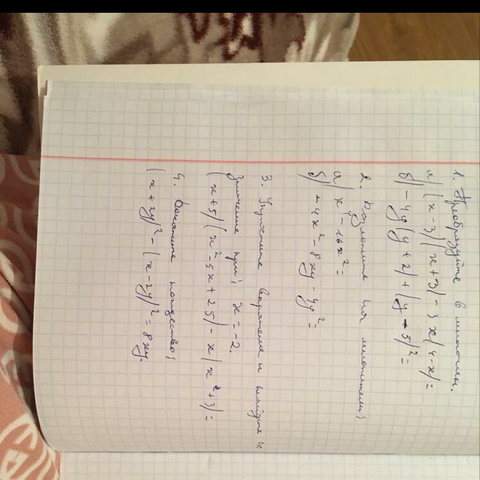 1. Преобразуйте в многочлен.
а) (x-3)(x+3)-3x(4-x)=
б) -4y(y+2)+(y-5)²=
2. Разложите на множители:
а) x⁴-16x²=
б) -4x²-8xy-4y²=
3. Упростите выражение и найдите
значение при: x=-2.
(x+5)(x²-5x+25)-x(x²+3)=
4. Докажите тождество:
(x+2y)²-(x-2y)²=8xy.